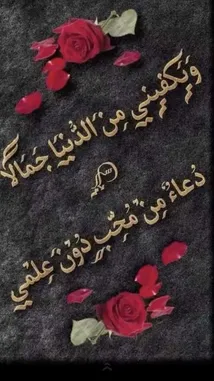 وَيَكْفِينِي مِنَ الدُّنْيَا جَمَالًا
دُعَاءٌ مِنْ مُحِبٍّ دُوْنَ عِلْمِي